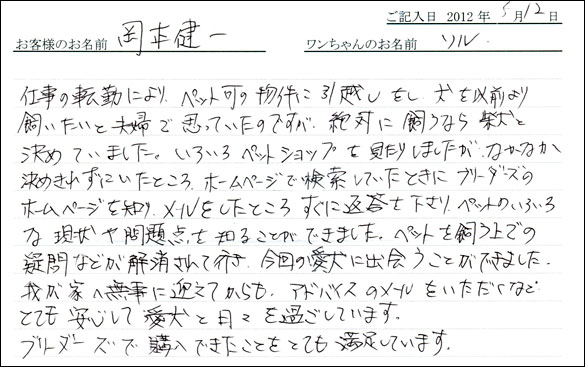 ご記入日 2012年 5月12日
お客様のお名前 岡本健一 ワンちゃんのお名前 ソル
仕事の転勤により、ペット可の物件に引越しをし、犬を以前より
飼いたいと夫婦で思っていたのですが、絶対に飼うなら柴犬と
決めていました。いろいろペットショップを見たりしましたが、なかなか
決めきれずにいたところ、ホームページで検索していたときにブリーダーズの
ホームページを知り、メールをしたところすぐに返答を下さり、ペットのいろいろ
な現状や問題点を知ることができました。ペットを飼う上での
疑問などが解消されて行き、今回の愛犬に出会うことができました。
我が家へ無事に迎えてからも、アドバイスのメールをいただくなど
とても安心して愛犬と日々を過ごしています。
ブリーダーズで購入できたことをとても満足しています。